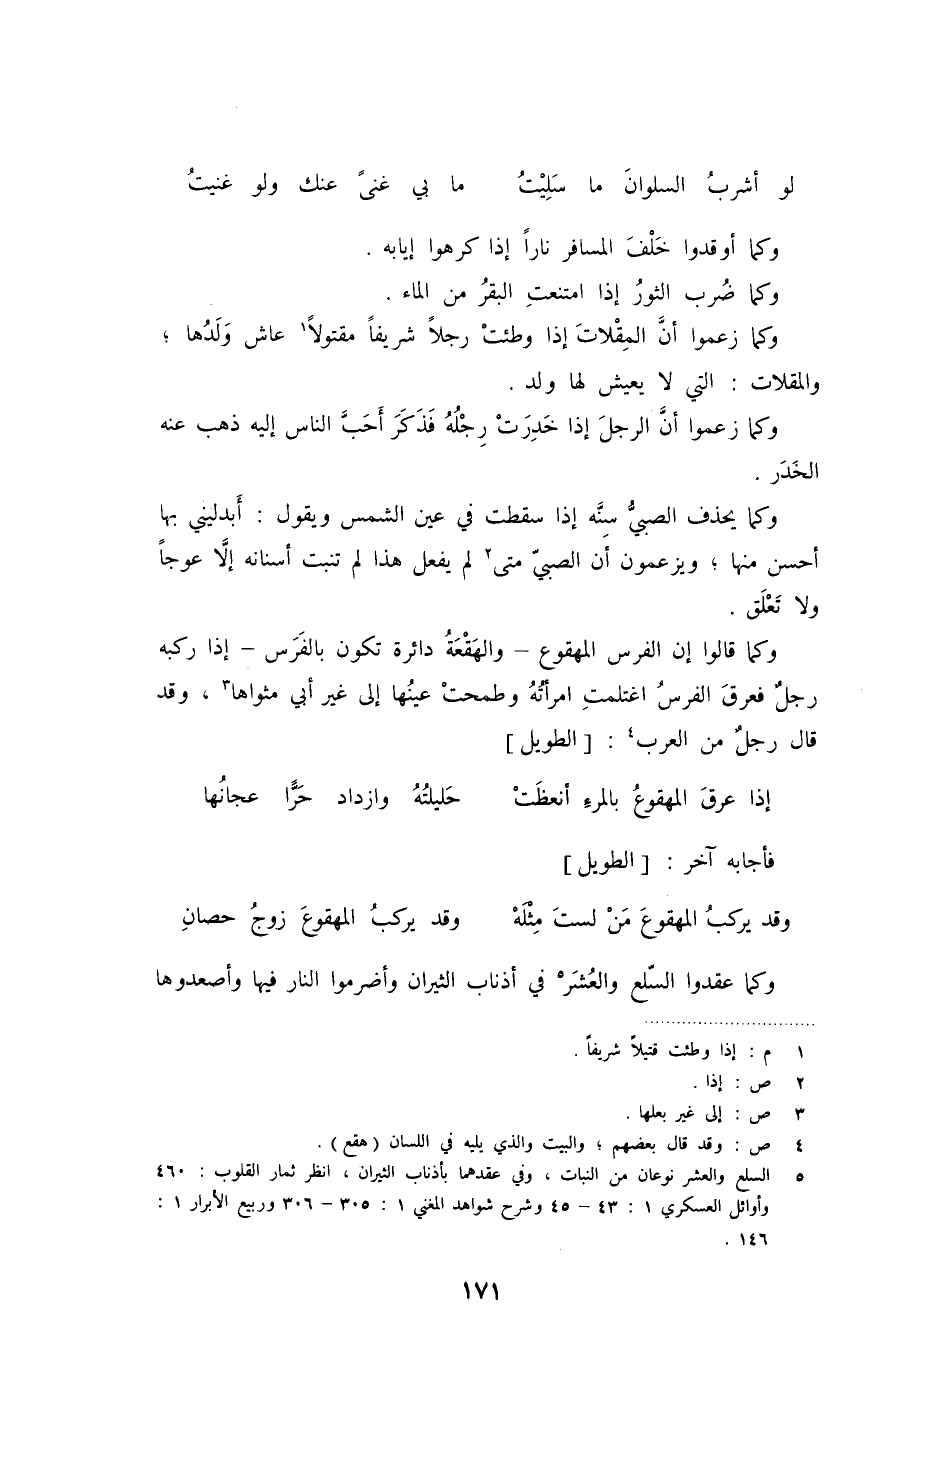 لو أشربُ السلوانَ ما سَلِيْتُ ما بي غنىً عنك ولو غنيتُ
وكما أوقدوا خَلْفَ المسافر ناراً إذا كرهوا إيابه .
وكما ضُرب الثورُ إذا امتنعتِ البقرُ من الماء .
وكما زعموا أنَّ المِقْلاتَ إذا وطئتْ رجلاً شريفاً مقتولاً١ عاش وَلَدُها ؛
والمقلات : التي لا يعيش لها ولد .
وكما زعموا أنَّ الرجلَ إذا خَدِرَتْ رِجْلُهُ فَذَكَرَ أَحَبَّ الناس إليه ذهب عنه
الخَدَر .
وكما يحذف الصبيُّ سِنَّه إذا سقطت في عين الشمس ويقول : أَبدليني بها
أحسن منها ؛ ويزعمون أن الصبيّ متى٢ لم يفعل هذا لم تنبت أسنانه إلَّا عوجاً
ولا تَعْلَق .
وكما قالوا إن الفرس المهقوع – والهَقْعَةُ دائرة تكون بالفَرَس – إذا ركبه
رجلٌ فعرقَ الفرسُ اغتلمتِ امرأتُهُ وطمحتْ عينُها إلى غير أبي مثواها٣ ، وقد
قال رجلٌ من العرب٤ : [ الطويل ]
إذا عرقَ المهقوعُ بالمرءِ أنعظَتْ حَليلتُهُ وازداد حَرًّا عجانُها
فأجابه آخر : [ الطويل ]
وقد يركبُ المهقوعَ مَنْ لستَ مِثْلَهْ وقد يركبُ المهقوعَ زوجُ حصانِ
وكما عقدوا السّلع والعُشَرْ٥ في أذناب الثيران وأضرموا النار فيها وأصعدوها
١ م : إذا وطئت قتيلاً شريفاً .
٢ ص : إذا .
٣ ص : إلى غير بعلها .
٤ ص : وقد قال بعضهم ؛ والبيت والذي يليه في اللسان ( هقع ) .
٥ السلع والعشر نوعان من النبات ، وفي عقدهما بأذناب الثيران ، انظر ثمار القلوب : ٤٦٠
وأوائل العسكري ١ : ٤٣ – ٤٥ وشرح شواهد المغني ١ : ٣٠٥ – ٣٠٦ وربيع الأبرار ١ :
١٤٦ .
١٧١